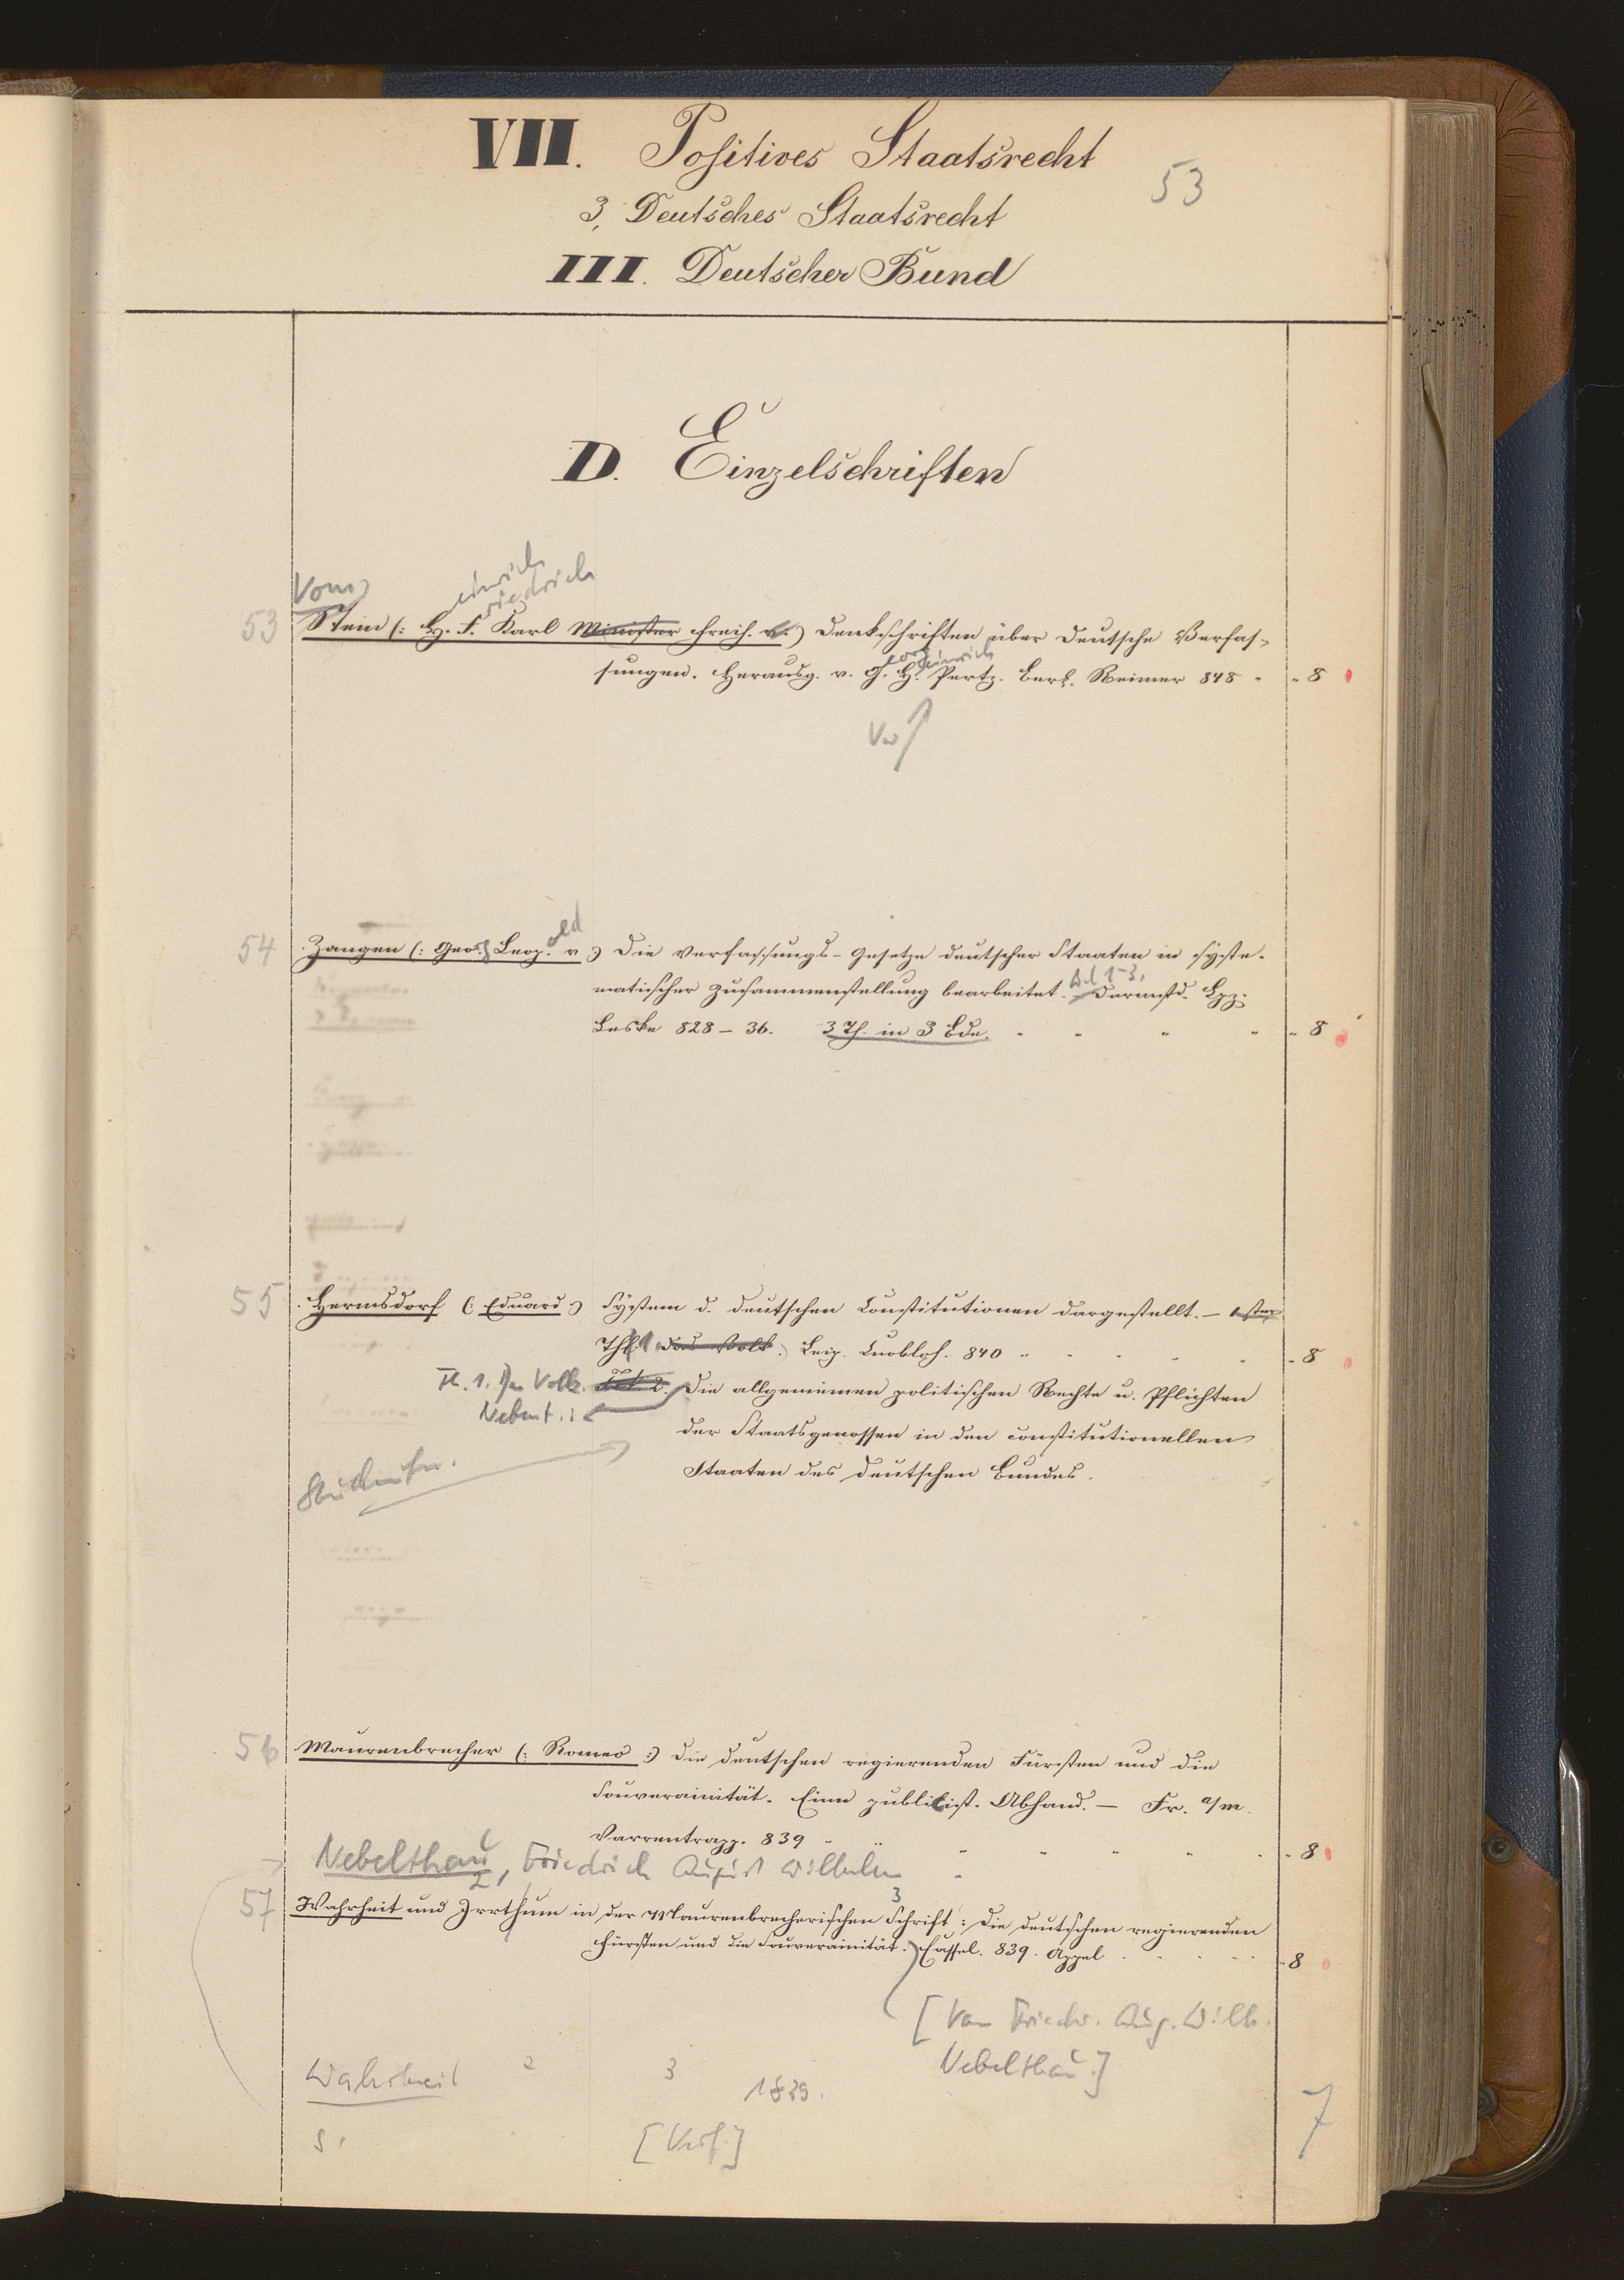 VII. Positives Staatsrecht
53
3, Deutsches Staatsrecht
III. Deutscher Bund
D. Einzelschriften
Vom
einrich
riedrich
53 Stein (: H. F. Karl Minister Freih. v. :) Denkschriften über Deutsche Verfas-
eorg einrich
sungen. Herausg. v. G. H. Pertz. Berl. Reimer 848 " " 8
Verf
old
54 Zangen (: Georg Leop. v :) Die Verfassungs-Gesetze deutscher Staaten in syste-
Bd 1-3.
matischer Zusammenstellung bearbeitet. - Darmstd. Lpz.
Leske 828-36. 3 Th. in 3 Bde. " " " " " 8
55 Hermsdorf (: Eduard :) System d. deutschen Constitutionen dargestellt. - 1ster
Thl. 1 Das Volk. Leip. Knobloch. 840 " " " " " 8
Tl. 1. Das Volk. Die allgemeinen politischen Rechte u. Pflichten
Nebent.:
der Staatsgenossen in den constitutionellen
Staaten des deutschen Bundes.
56 Maurenbrecher (: Romeo :) Die deutschen regierenden Fürsten und die
Souverainität. Eine publicist. Abhand. - Fr. a/m.
Varrentrapp. 839 " " " " " " 8
Nebelthau, Friedrich August Wilhelm
2 3
57 Wahrheit und Irrthum in der Maurenbrecherischen Schrift: Die deutschen regierenden
Fürsten und die Souverainität. Cassel. 839. Appel " 8
[Von Friedr. Aug. Wilh.
Nebelthau.]
Wahrheit 2 3
1839.
s. [Verf.]
7